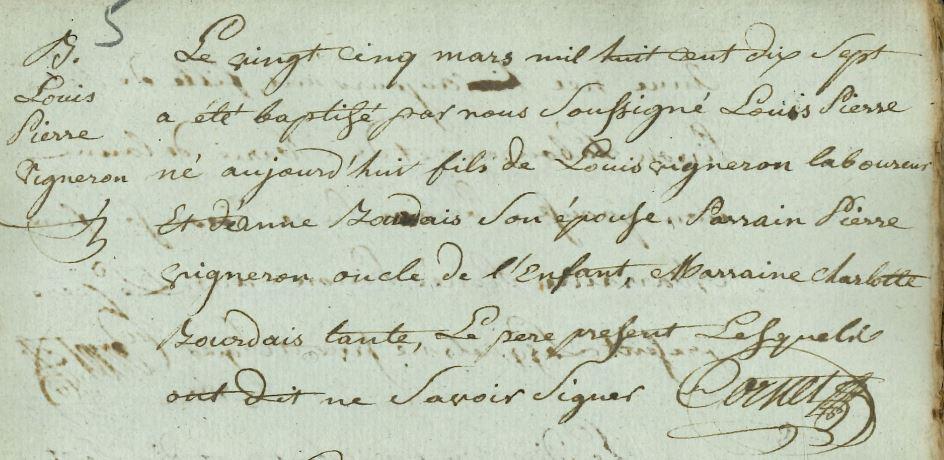 5
B.
Louis
Pierre
vigneron
Le vingt cinq mars mil huit cent dix Sept
a été baptisé par nous Soussigné Louis Pierre
né aujourd'hui fils de Louis vigneron laboureur
Et Jeanne Bourdais Son épouse. Parrain Pierre
vigneron oncle de l'Enfant, Marraine charlotte
Bourdais tante, Le pere present Lesquels
ont dit ne Savoir Signer Cornet